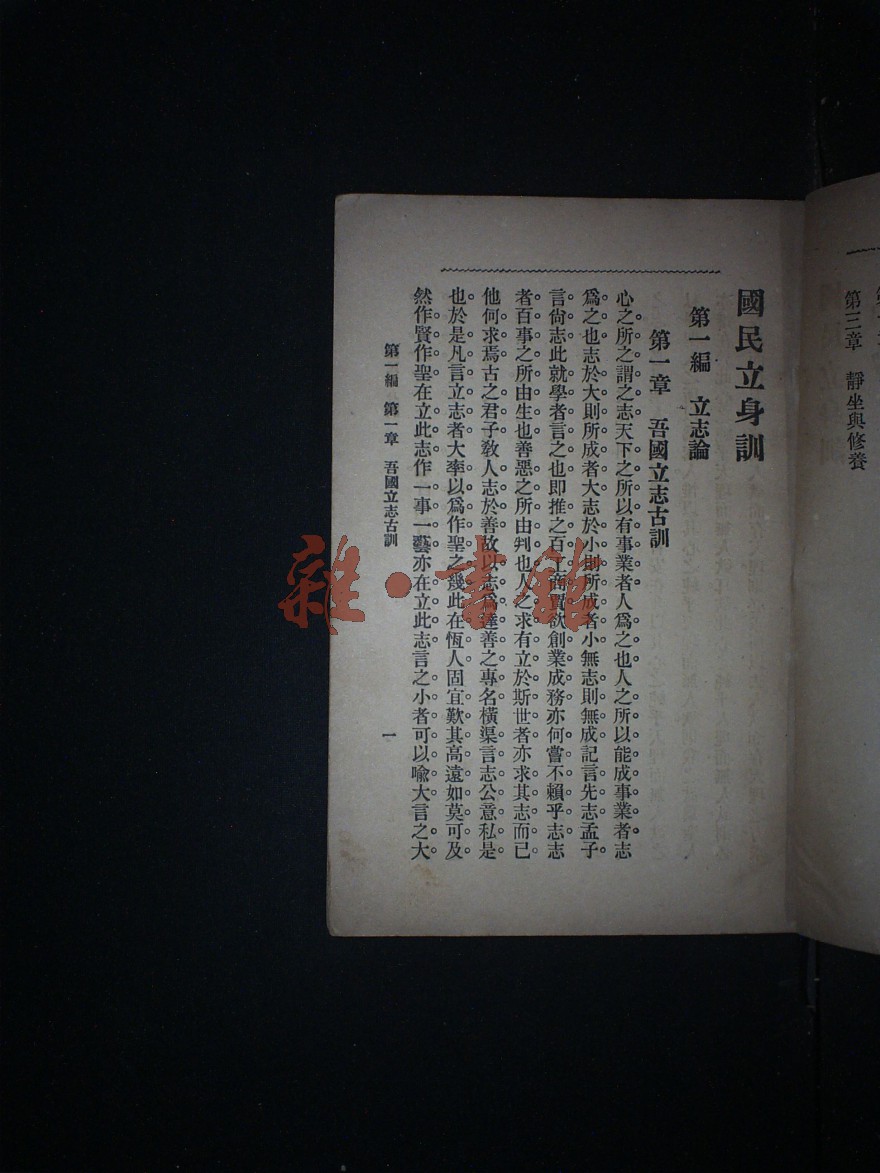 第三章　靜坐與修養
國民立身訓
第一編　立志論
第一章　吾國立志古訓
心之所之謂之志天下之所以有事業者人爲之也人之所以能成事業者志
爲之也志於大則所成者大志於小則所成者小無志則無成記言先志孟子
言尙志此就學者言之也卽推之百工商賈欲創業成務亦何嘗不賴乎志志
者百事之所由生也善惡之所由判也人之求有立於斯世者亦求其志而已
他何求焉古之君子敎人志於善故以志爲達善之專名橫渠言志公意私是
也於是凡言立志者大率以爲作聖之幾此在恆人固宜歎其高遠如莫可及
然作賢作聖在立此志作一事一藝亦在立此志言之小者可以喻大言之大
第一編　第一章　吾國立志古訓
一
雜·書館